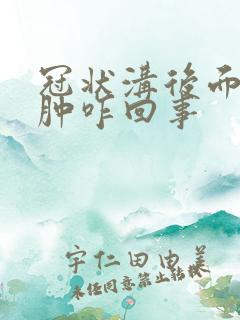 冠状溝後而
肿咋回事
宇仁田由美
未经同意禁止转换